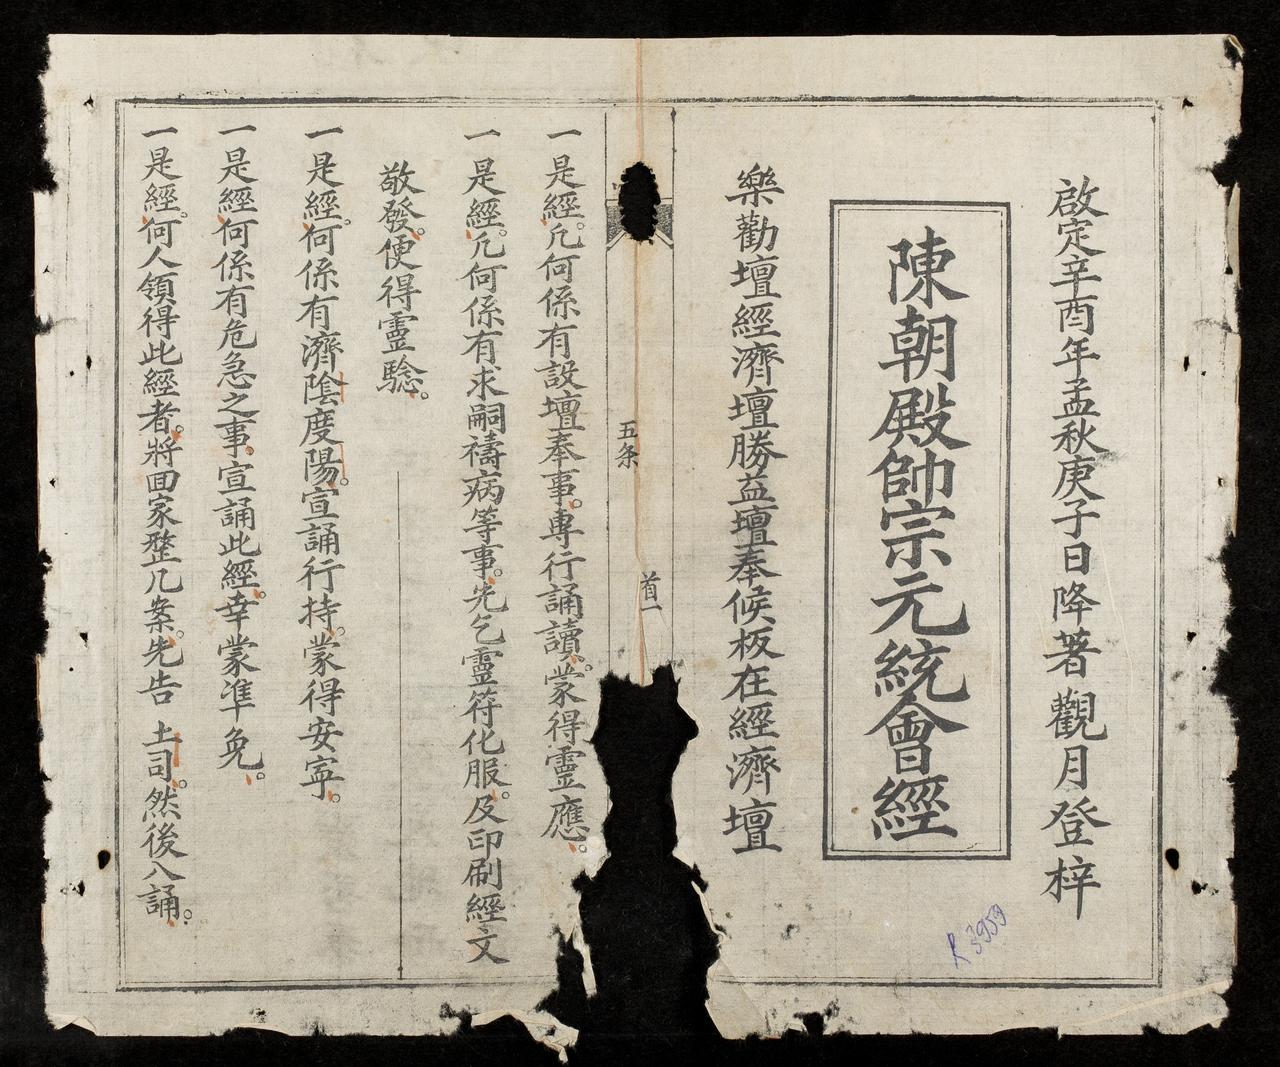 啟定辛酉年孟秋庚子日降著觀月登梓
陳朝殿帥宗元統會經
樂勸壇經濟壇勝益壇奉候板在經濟壇
五条
首一
一是經。凢何係有設壇奉事。專行誦讀。蒙得霊應。
一是經。凢何係有求嗣禱病等事。先乞霊符化服。及印刷經文
敬發。便得霊騐。
一是經。何係有濟陰度陽。宣誦行持。蒙得安寕。
一是經何係有危急之事。宣誦此經。幸蒙準免。
一是經。何人領得此經者。將回家整几案。先告 土司。然後入誦。
R 3959